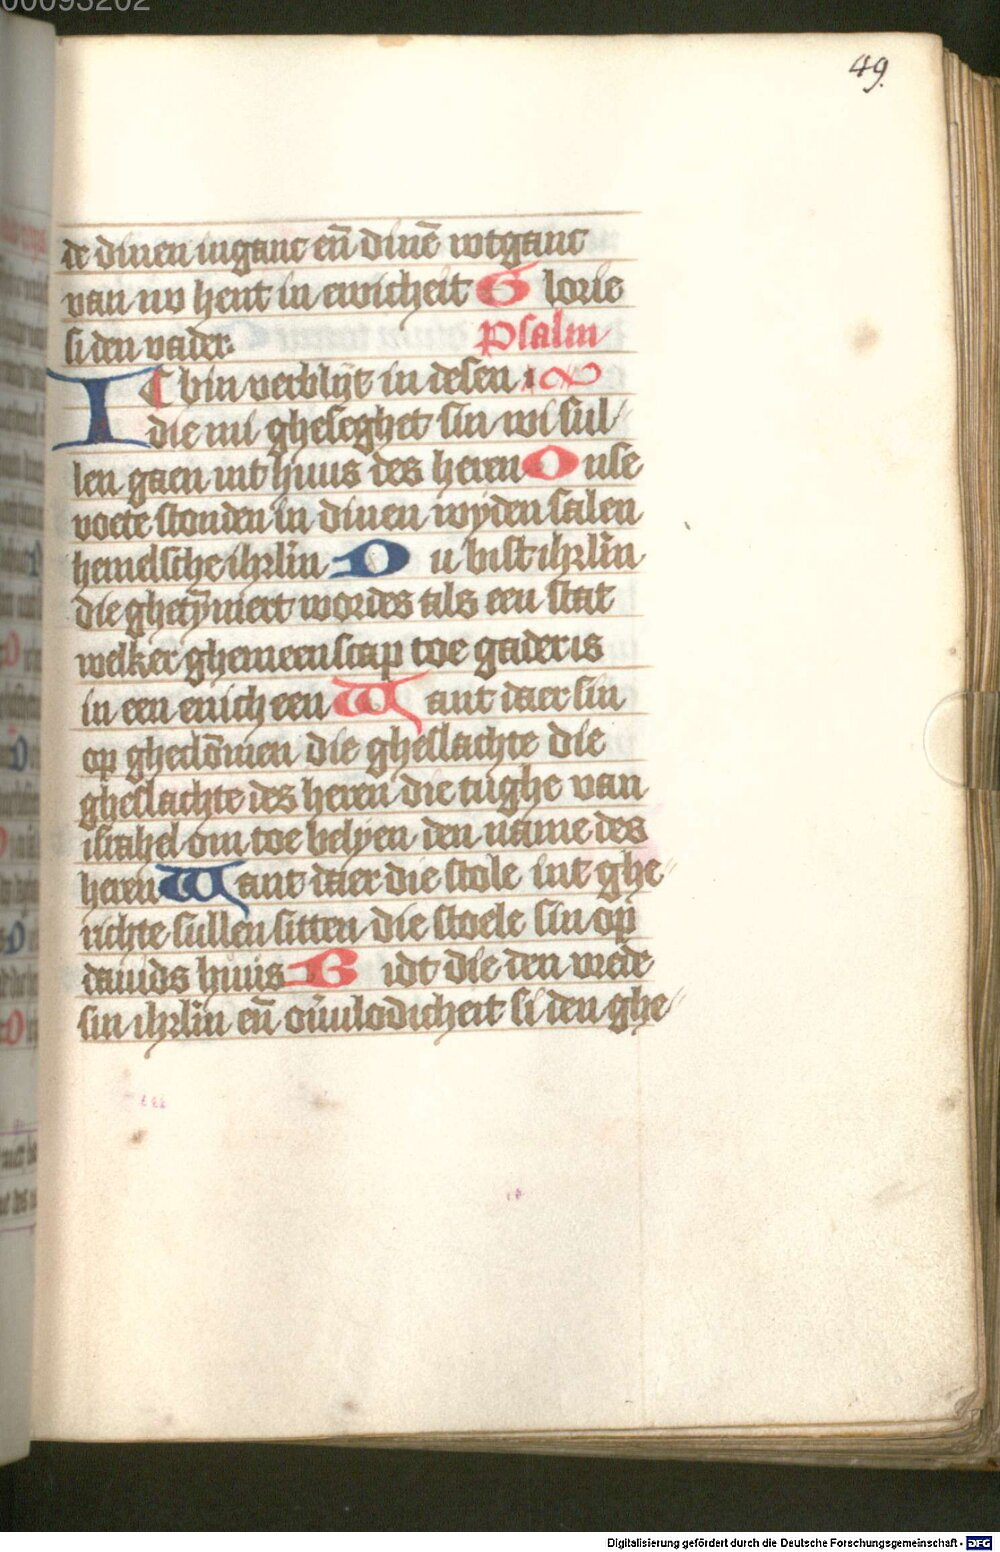 00093202
49.
de dinen inganc en̄ dinē wtganc
van nv hent in ewicheit Glorie
si den vader. Psalm
Ic bin verblijt in desen
die mi gheseghet sin wi sul/
len gaen int huus des heren Onse
voete stonden in dinen wyden salen
hemelsche ihrl̄m Du bist ihrl̄m
die ghetȳmert wordes als een stat
welker ghemeenscap toe gader is
in een enich een Want daer sin
op gheclōmen die gheslachte die
gheslachte des heren die tughe van
israhel om toe belyen den name des
heren Want daer die stole int ghe/
richte sullen sitten die stoele sin op
dauids huus Bidt die den vrede
sin ihrl̄m en̄ ou̅ulodicheit si den ghe/
Digitalisierung gefördert durch die Deutsche Forschungsgemeinschaft - DFG